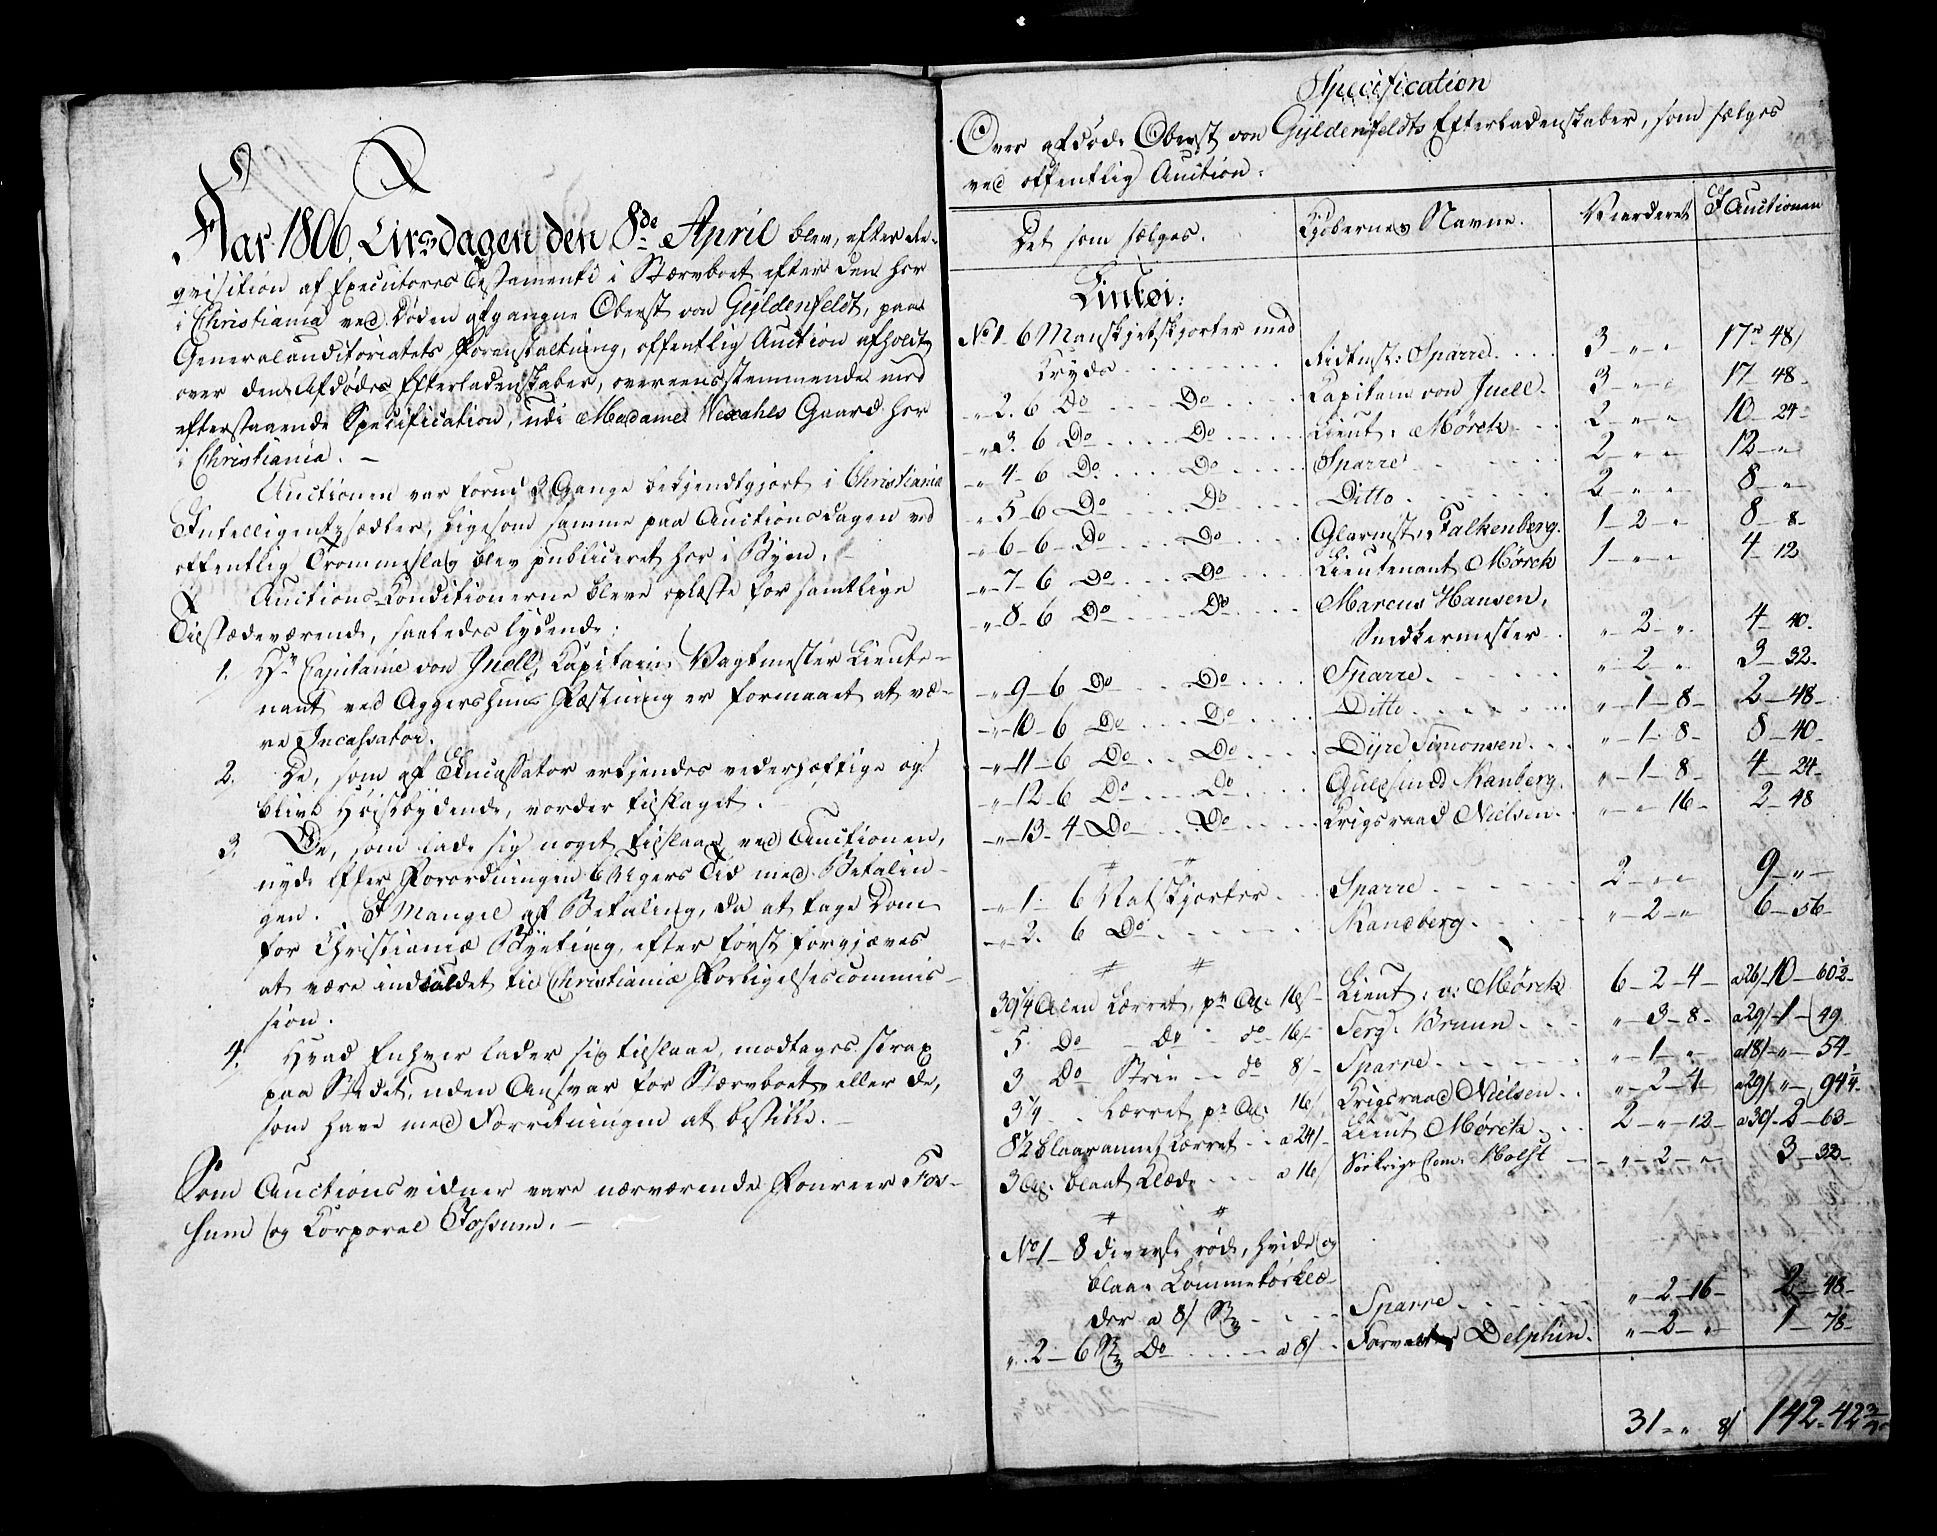 Aar 1806, Tirsdagen den 8de April blev, efter Re-
qvisition af Executores Testamenti i Stærvboet efter den her
i Christiania ved Døden afgangne Oberst von Gyldenfeldt, paa
Generalauditoriatets Foranstaltning, offentlig Auction afholdt
over den Afdødes Efterladenskaber, overeensstemmende med
efterstaaende Specification, udi Madame Gaard her
i Christiania. –
Auctionen var forud 3 Gange bekjendtgjort i Christiania
Intelligentzsedler, ligesom samme paa Auctionsdagen ved
offentlig Trommeslag blev publiceret her i Byen.
Auctions-Conditionerne bleve oplæste for samtlige
Tilstædeværende, saaledes lydende:
1. Hr Capitaine von Juell, Capitain Vagtmester Lieute-
nant ved Aggershuus Fæstning er formaaet at væ-
re Incassator.
2. De, som af Incassator erkjendes vederhæftige og
blive Høistbydende, vorder tilslaget.
3. De, som lade sig noget tilslaae ved Auctionen,
nyde efter Forordningen 6 Ugers Tid med Betalin-
gen. I Mangel af Betaling, da at tage Dom
for Christianiæ Byeting, efter først forgjæves
at være indkaldet til Christianiæ Forligelsescommis-
sion.
4. Hvad Enhver lader sig tilslaae, modtages strax
paa Stædet, uden Ansvar for Stærvboet eller de,
som have med Forretningen at bestille. –
Som Auctionsvidner vare nærværende Foureer Fos-
sum og Corporal Fossum. –
Specification
Over afdøde Oberst von Gyldenfeldts Efterladenskaber, som sælges
ved offentlig Auction:
Det som sælges. Kjøbernes Navne. Vurderet I Auctionen
Lintøi:
No 1 6 Manskjetskjorter med
Kryds . . . Ridtmst: Sparre . . . 3 – „ – „ 17 r 48 /
„ 2. 6 Do . . . Do . . . Capitain von Juell. 3 – „ – „ 17 – 48 –
„ 3. 6 Do . . . Do . . . Lieut: Mørch . . . 2 – „ – „ 10 – 24 –
„ 4 – 6 Do . . . Do . . . Sparre . . . 2 – „ – „ 12 – „
„ 5 – 6 Do . . . Do . . . Ditto . . . 2 – „ – „ 8 – „
„ 6 – 6 – Do . . . Do . . . Glarmst: Falkenberg. 1 – 2 – „ 8 – 8 –
„ 7 – 6 Do . . . Do . . . Lieutenant Mørch 1 – „ – „ 4 – 12
„ 8 – 6 Do . . . Do . . . Marcus Hansen,
Snedkermester . . . „ – 2 – „ 4 – 40.
„ 9 – 6 Do . . . Do . . . Sparre . . . „ – 2 – „ 3 – 32 –
„ 10 – 6 Do . . . Do . . . Ditto . . . „ – 1 – 8 – 2 – 48 –
„ 11 – 6 Do . . . Do . . . Dyre Simonsen . . . „ – 1 – 8 – 8 – 40 –
„ 12 – 6 Do . . . Do . . . Ranberg. „ – 1 – 8 – 4 – 24 –
„ 13 – 4 – Do . . . Do . . . Krigsraad Nielsen . . . „ – „ 16 – 2 – 48
„ 1. 6 Natskjorter . . . Sparre . . . 2 – „ – „ 9 – „ –
„ 2. 6 Do . . . Randberg. . . . „ – 2 – „ 6 – 56 –
39 1/4 Alen Lærret, pr Al: 16 s – Lieut: v: Mørch 6 – 2 – 4 – a 26/ – 10 – 60 1/2 –
5 Do – Do – do – 16/ – Serg: Bruun . . . „ – 3 – 8 – a 29/ – 1 – 49
3 Do Strie – do 8/ – Sparre . . . „ – 1 – „ a 18/ – „ – 54 –
3 1/4 . Lærret pr Al: 16/ Krigsraad Nielsen . . . „ – 2 – 4 – a 29/ – „ – 94 1/4 –
8 1/2 blaarannet Lærret . . . a 24/ – Lieut Mørch . . . 2 – „ – 12 – a 30/ – 2 – 63 –
3 Al: blaat Klæde . . . a 16/ Holst . . . „ – 2 – „ 3 – 33 –
No 1 – 8 diverse røde, hvide og
blaae Lommetørklæ-
der a 8/ St . . . Sparre . . . „ – 2 – 16 – 2 – 48 –
„ 2 – 6 St Do . . . a 8/ – Forvalter Delphin. „ – 2 – „ 1 – 78 –
31 – „ 8/ 142 – 42 3/4